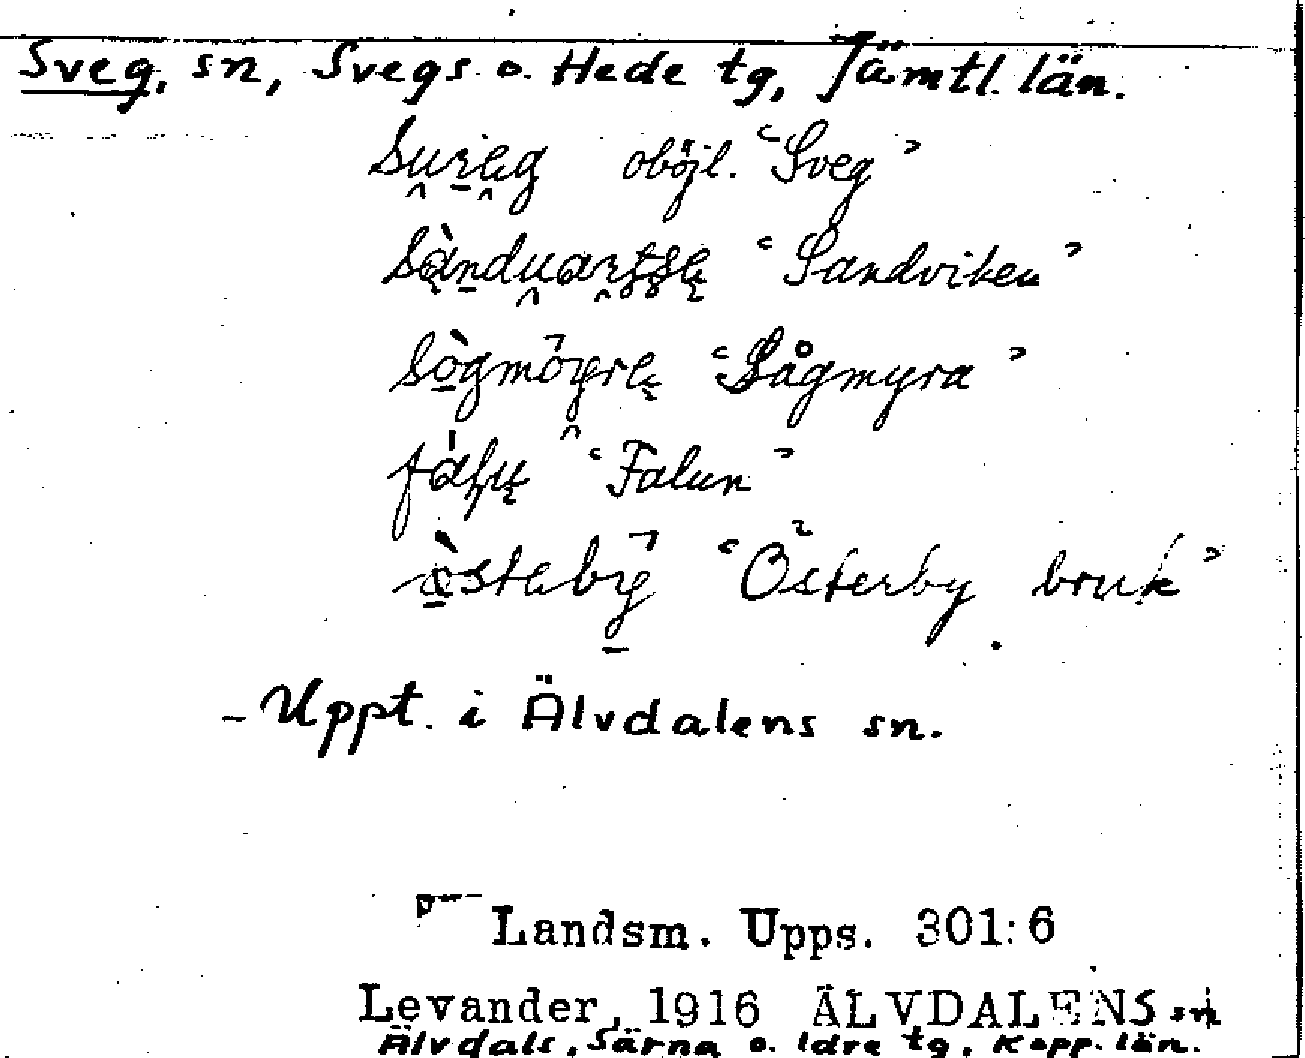 Sveg, sn, Svegs o. Hede tg, Jämtl. län.
oböjl. "Sveg"
"Sandviken"
"Sågmyra"
"Falun"
"Österby bruk"
- Uppt. i Älvdalens sn.
Landsm. Upps. 301:6
Levander, 1916 ÄLVDALENS sn
Älvdals, Särna o. Idre tg, Kopp. län.